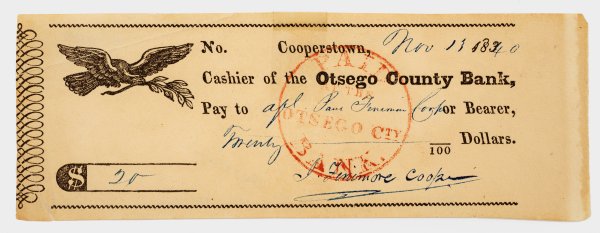 No. Cooperstown, Nov 13 1840
Cashier of the Otsego County Bank,
Pay to Paul Fenimore Coop or Bearer,
Twenty 100 Dollars.
$ 20
J. Fenimore Cooper
PAID
AT THE
OTSEGO CTY
BANK.